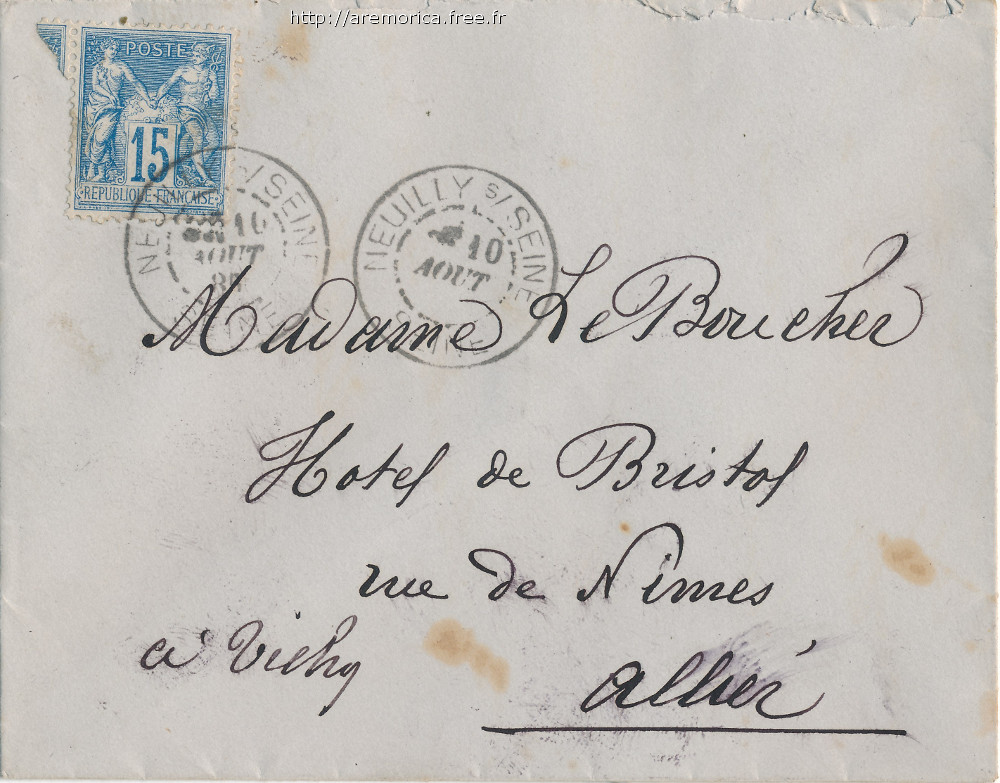 http://aremorica.free.fr
POSTE
15
REPUBLIQUE FRANÇAISE
S/SEINE
10
AOUT
NEUILLY S/SEINE
10
AOUT
Madame Le Boucher
Hotel de Bristol
rue de Nimes
à Vichy
Allier